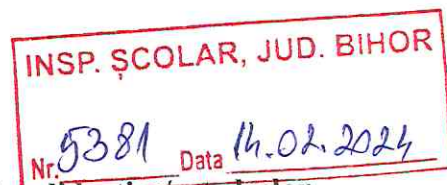 INSP. ȘCOLAR, JUD. BIHOR
Nr. 5381 Data 14.02.2024